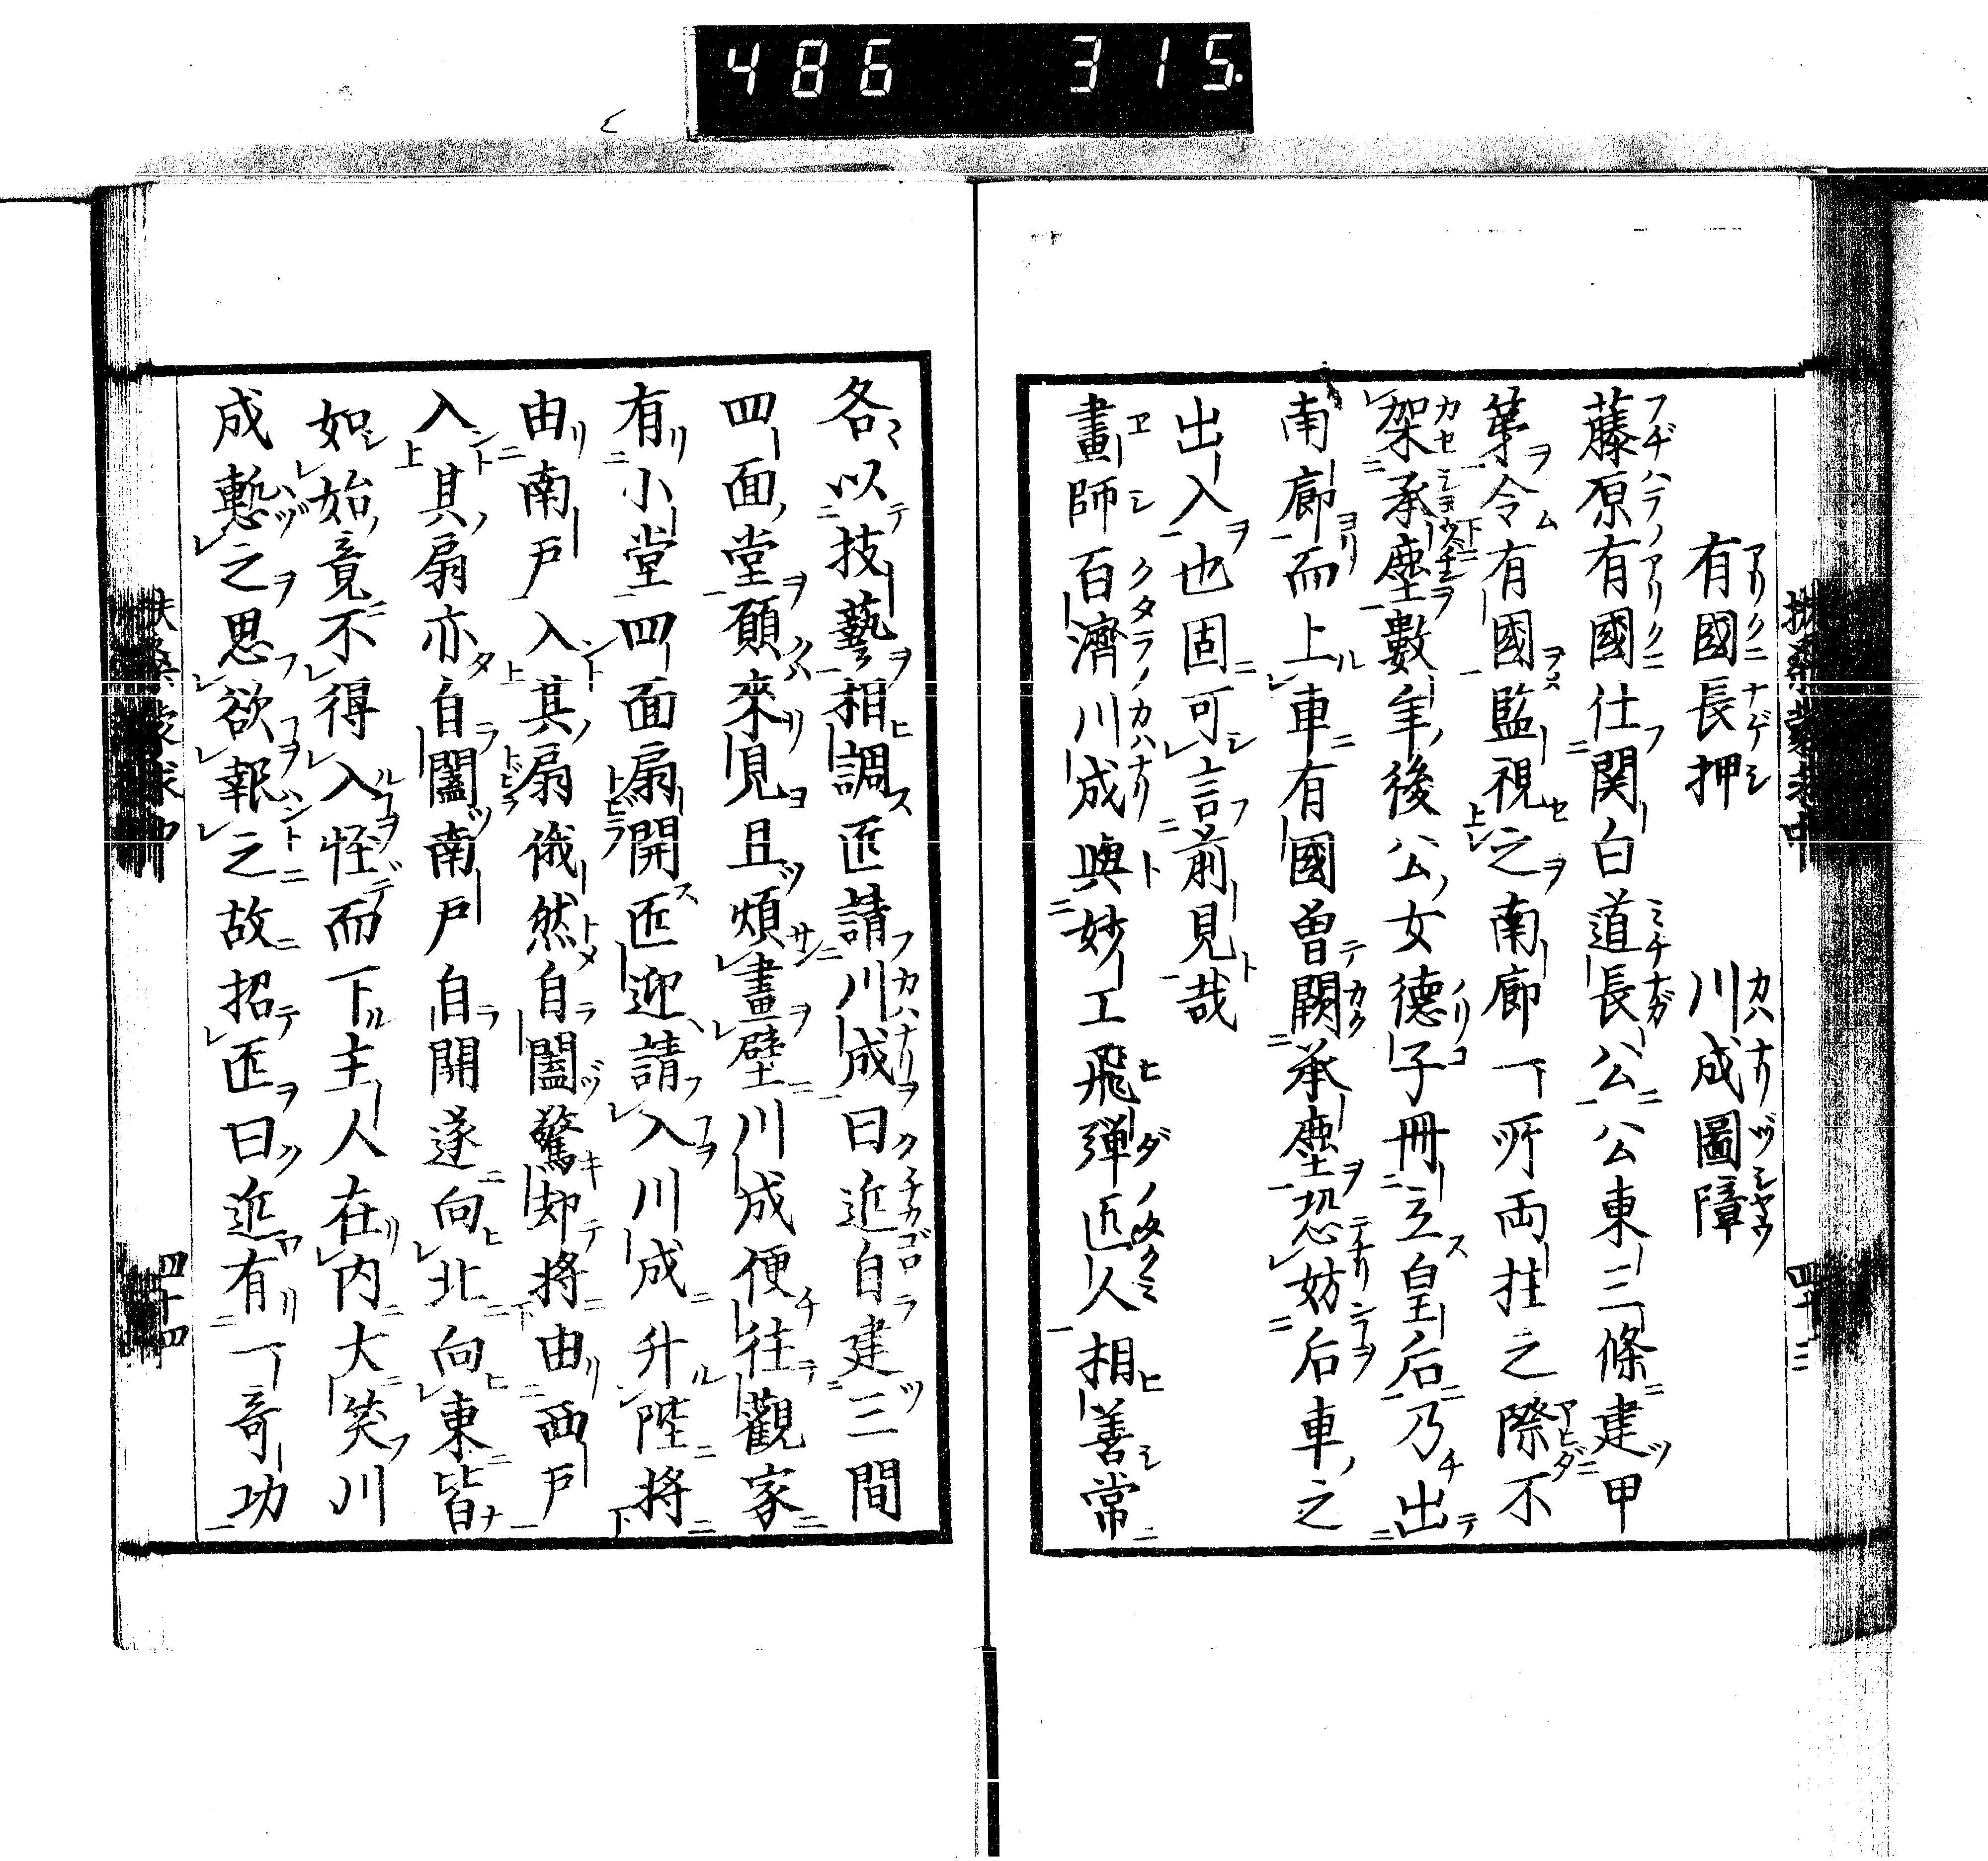 486 315.
有國長押 川成圖障
藤原有國仕関白道長公公東三條建甲
第令有國監視之南廊一所両柱之際不
架承塵數年後公女德子冊立皇后乃出
南廊而上車有國曽闕承塵恐妨后車之
出入也固可言前見哉
畫師百濟川成與妙工飛彈匠人相善常
各以技藝相調匠請川成曰近自建三間
四面堂願來見且煩畫壁川成便往觀家
有小堂四面扇開匠迎請入川成升陛将
由南戸入其扇俄然自闔驚却将由西戸
入其扇亦自闔南戸自開遂向北向東皆
如始竟不得入怪而下主人在内大笑川
成慙之思欲報之故招匠曰近有一奇功
扶桑蒙求中 四十四